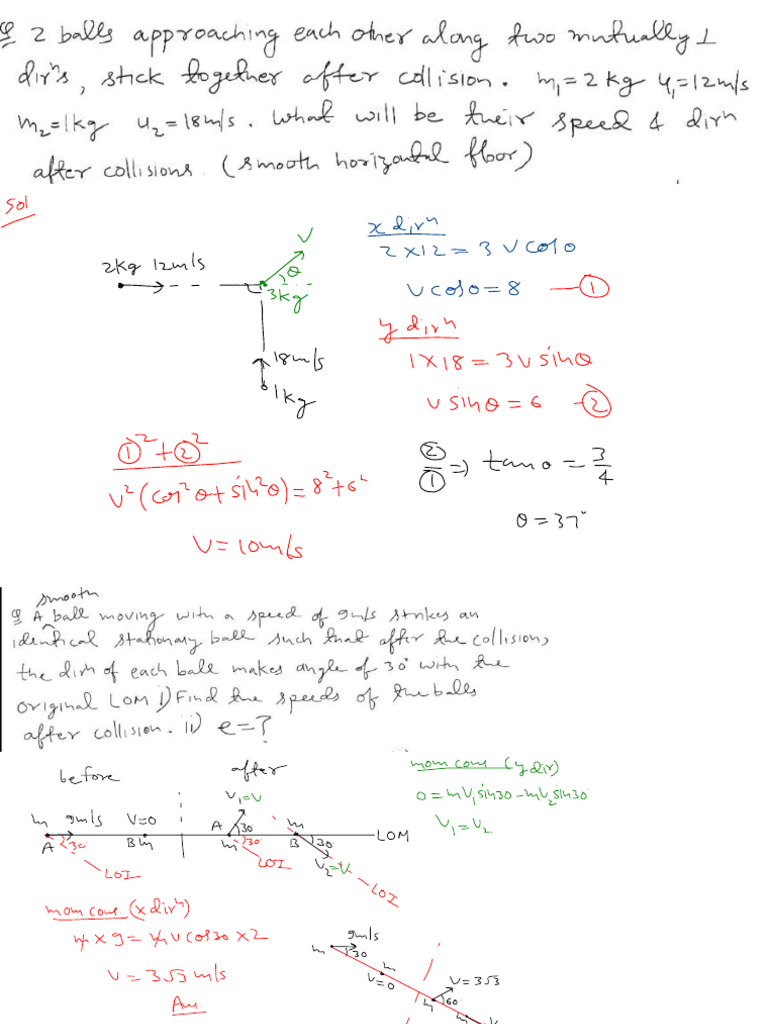 Q 2 balls approaching each other along two mutually ⊥
dirⁿs, stick together after collision. m₁=2kg u₁=12m/s
m₂=1kg u₂=18m/s. What will be their speed & dirⁿ
after collisions. (smooth horizontal floor)
Sol
x dirⁿ
2×12 = 3 V cosθ
V cosθ = 8 —①
V
θ
2kg 12m/s
3kg
y dirⁿ
1×18 = 3V sinθ
V sinθ = 6 —②
18m/s
1kg
①²+②²
V²(cos²θ + sin²θ) = 8²+6²
V = 10m/s
②/① ⇒ tanθ = 3/4
θ = 37°
smooth
Q A ball moving with a speed of 9m/s strikes an
identical stationary ball such that after the collision,
the dirⁿ of each ball makes angle of 30° with the
original LOM i) Find the speeds of the balls
after collision. ii) e=?
before
after
mom cons (y dir)
0 = mV₁sin30 - mV₂sin30
V₁ = V₂
V₁=V
m 9m/s V=0
A 30 B m
A 30 m 30
m B 30
LOM
V₂=V
LOI
LOI
LOI
mom cons (x dirⁿ)
m × 9 = m V cos30 × 2
V = 3√3 m/s
Ans
9m/s
m 30
m
V=0
V=3√3
60
m
m